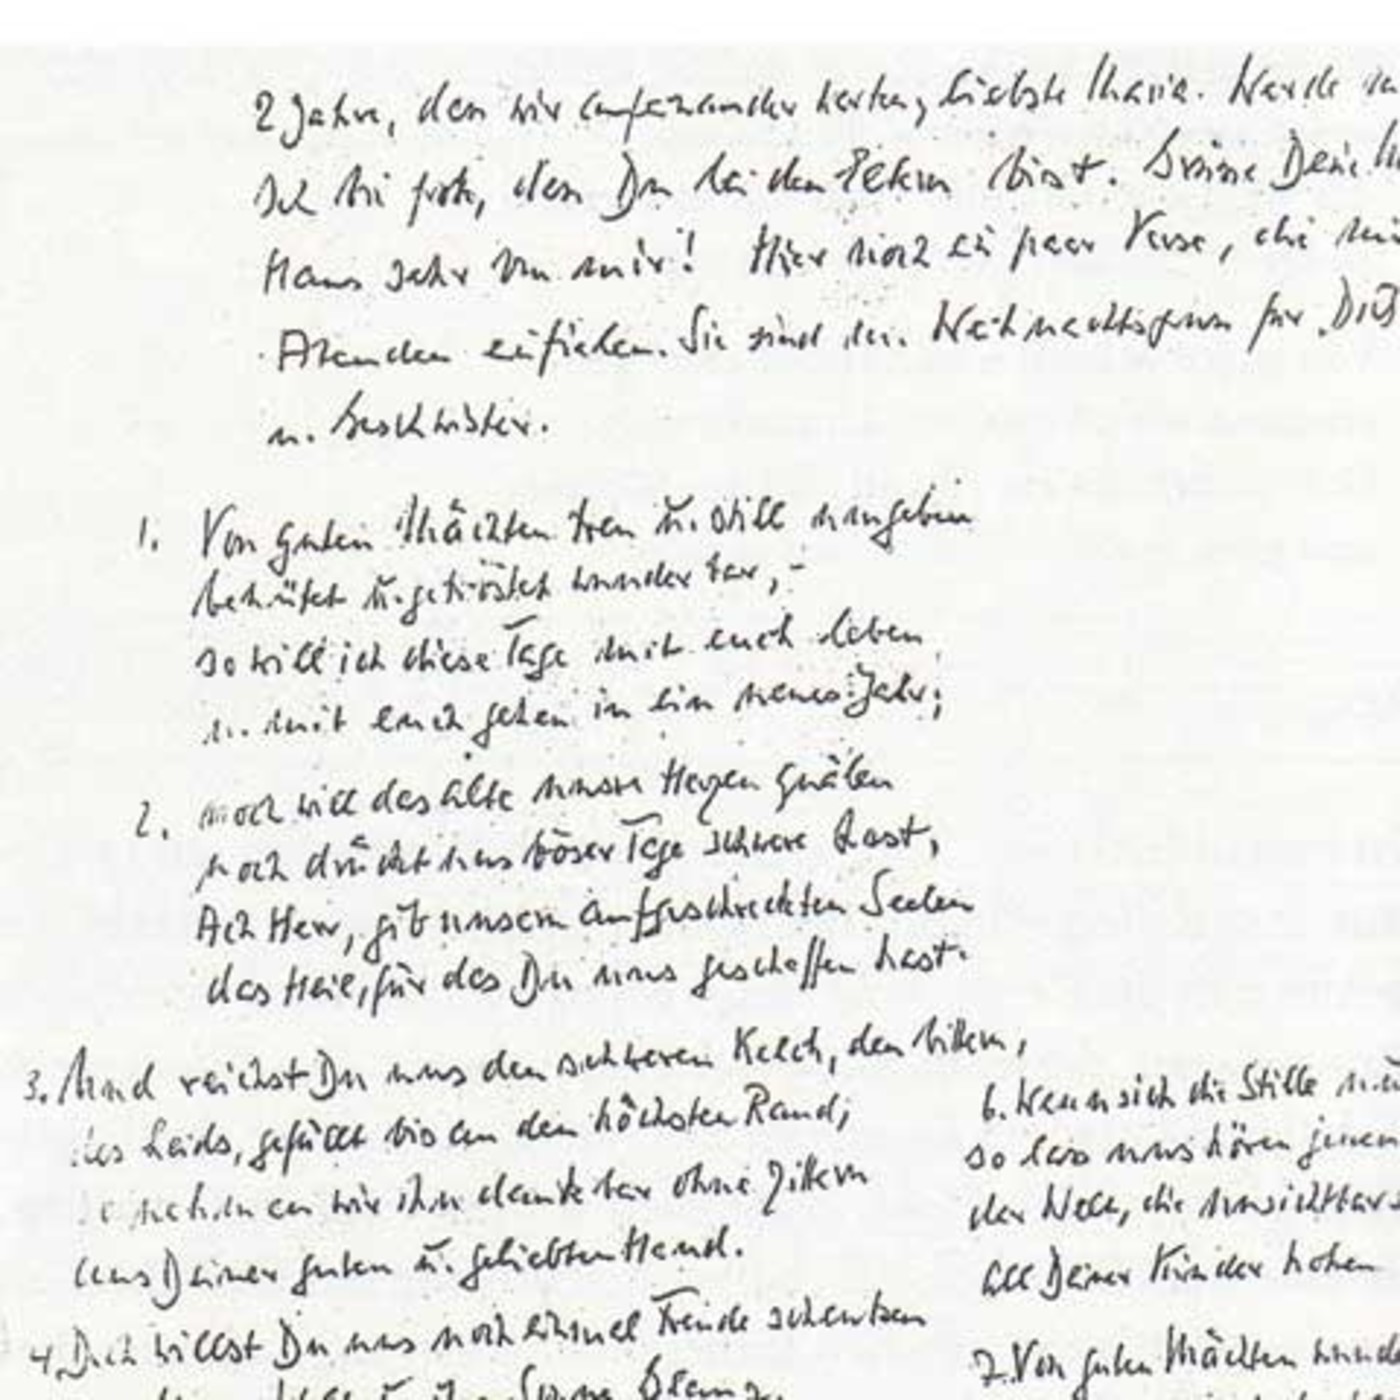 2 Jahre, dass wir aufeinander warten, liebste Maria. Werde
Ich bin froh, dass Du bei den Eltern bist. Grüsse Deine
Haus sehr von mir! Hier noch ein paar Verse, die
Abenden einfielen. Sie sind der Weihnachtsgruss für Dich
u. Geschwister.
1. Von guten Mächten treu u. still umgeben
behütet u. getröstet wunderbar, -
so will ich diese Tage mit euch leben
u. mit euch gehen in ein neues Jahr;
2. noch will das alte unsre Herzen quälen
noch drückt uns böser Tage schwere Last,
Ach Herr, gib unsern aufgeschreckten Seelen
das Heil, für das Du uns geschaffen hast.
3. Und reichst Du uns den schweren Kelch, den bittern,
des Leids, gefüllt bis an den höchsten Rand,
so nehmen wir ihn dankbar ohne Zittern
aus Deiner guten u. geliebten Hand.
4. Doch willst Du uns noch einmal Freude schenken
Sonne Glanz,
6. Wenn sich die Stille
so lass uns hören jenen
der Welt, die unsichtbar
all Deiner Kinder hohen
7. Von guten Mächten